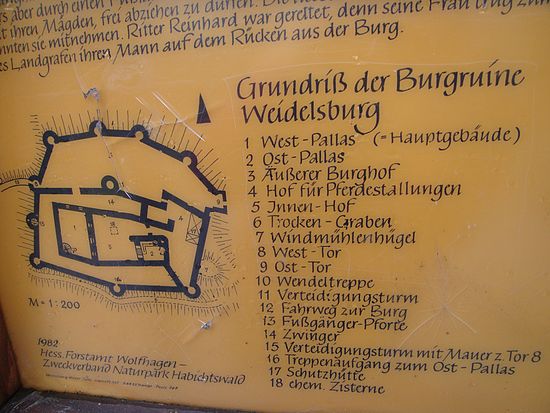 aber durch einen
ihren Mägden, frei abziehen zu dürfen. Die
sie mitnehmen. Ritter Reinhard war gerettet, denn seine Frau trug
Landgrafen ihren Mann auf dem Rücken aus der Burg.
Grundriß der Burgruine
Weidelsburg
1 West-Pallas (= Hauptgebäude)
2 Ost-Pallas
3 Äußerer Burghof
4 Hof für Pferdestallungen
5 Innen-Hof
6 Trocken-Graben
7 Windmühlenhügel
8 West-Tor
9 Ost-Tor
10 Wendeltreppe
11 Verteidigungsturm
12 Fahrweg zur Burg
13 Fußgänger-Pforte
14 Zwinger
15 Verteidigungsturm mit Mauer z. Tor 8
16 Treppenaufgang zum Ost-Pallas
17 Schutzhütte
18 ehem. Zisterne
M = 1:200
1982
Hess. Forstamt Wolfhagen –
Zweckverband Naturpark Habichtswald